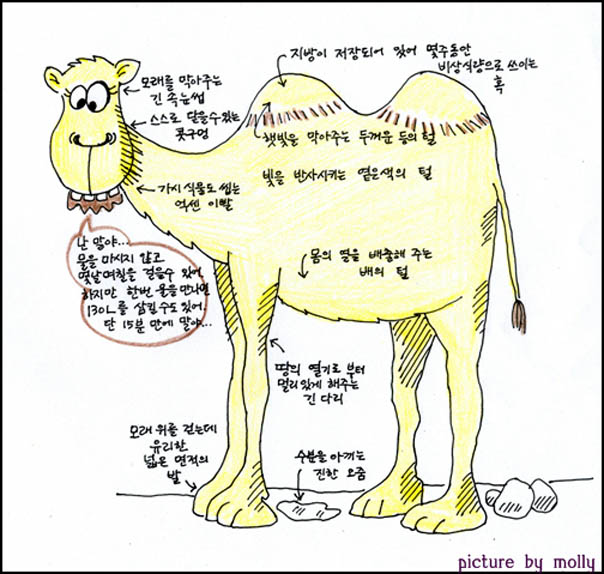 지방이 저장되어 있어 몇주동안
비상식량으로 쓰이는
혹
모래를 막아주는
긴 속눈썹
스스로 닫을수있는
콧구멍
햇빛을 막아주는 두꺼운 등의 털
가시 식물도 씹는
억센 이빨
빛을 반사시키는 옅은색의 털
난 말야...
물을 마시지 않고
몇날며칠을 걸을수 있어
하지만 한번 물을 만나면
130L를 삼킬수도 있어
단 15분 만에 말야...
몸의 열을 배출해 주는
배의 털
땅의 열기로 부터
멀리있게 해주는
긴 다리
모래 위를 걷는데
유리한
넓은 면적의
발
수분을 아끼는
진한 오줌
picture by molly